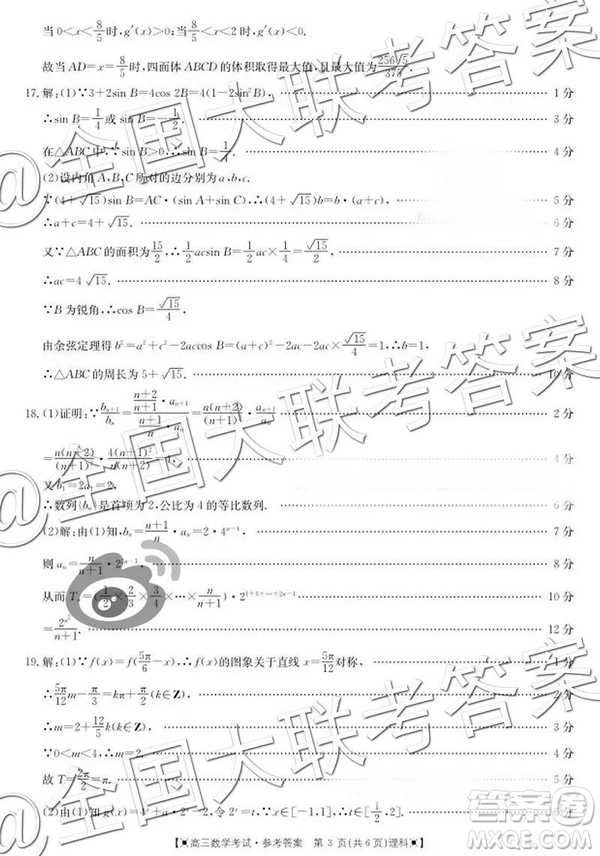 当0<x<8/5时,g′(x)>0;当8/5<x<2时,g′(x)<0.
故当AD=x=8/5时,四面体ABCD的体积取得最大值,且最大值为256√5/375.
17.解:(1)∵3+2sin B=4cos 2B=4(1-2sin²B), 1分
∴sin B=1/4或sin B=-1/2. 3分
在△ABC中,∵sin B>0,∴sin B=1/4. 4分
(2)设内角A,B,C所对的边分别为a,b,c.
∵(4+√15)sin B=AC·(sin A+sin C),∴(4+√15)b=b·(a+c),
∴a+c=4+√15. 6分
又∵△ABC的面积为√15/2,∴1/2acsin B=1/2ac×1/4= 7分
∴ac=4√15. 8分
∵B为锐角,∴cos B=√15/4.
由余弦定理得b²=a²+c²-2accos B=(a+c)²-2ac-2ac×√15/4=1,
∴△ABC的周长为5+√15. 10分
18.(1)证明:∵b_{n+1}/b_n= =n(n+2)/(n+1)²·a_{n+1}/a_n 2分
=n(n+2)/(n+1)²·4(n+1)²/n(n+2)=4, 4分
又b₁=2a₁=2,
∴数列{b_n}是首项为2,公比为4的等比数列. 6分
(2)解:由(1)知,b_n=(n+1)/n·a_n=2·4^{n-1}, 7分
则a_n=n/(n+1)·2^{2n-1}. 8分
从而T_n=(1/2×2/3×3/4×…×n/(n+1))·2^{1+3+…+2n-1} 10分
=2^{n²}/(n+1). 12分
19.解:(1)∵f(x)=f(5π/6-x),∴f(x)的图象关于直线x=5π/12对称, 1分
∴5π/12m-π/3=kπ+π/2(k∈Z), 2分
∴m=2+12/5k(k∈Z). 3分
∵0<m<4,∴m=2, 4分
故T=2π/2=π. 5分
(2)由(1)知g(x)=4^x-2^x,令2^x=t,∵x∈[-1,1],∴t∈[1/2,2], 6分
高三数学考试·参考答案 第3页(共6页)理科
@全国大联考答案
@全国大联考答案
@全国大联考答案